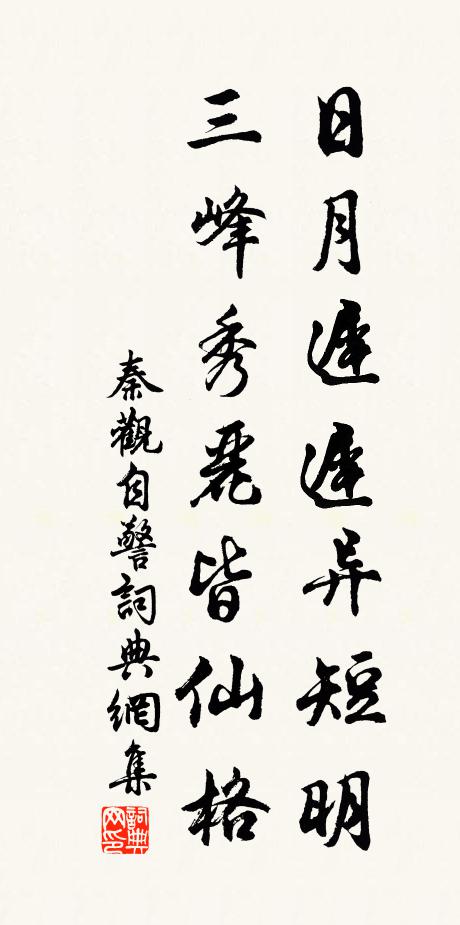 日月遲遲异短明
三峰秀麗皆仙格
秦觀自警詞典網集
詞典网印